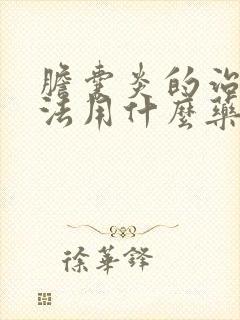 膽囊炎的治
法用什麼藥
徐華鋒